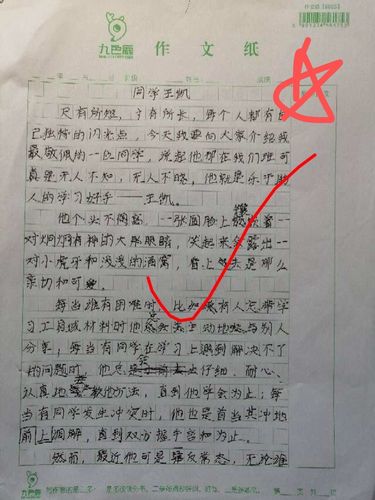 九色鹿 作文纸
同学王凯
尺有所短，寸有所长，每个人都有自
己独特的闪光点，今天我要向大家介绍我
最敬佩的一位同学，说起他那在我们班可
真是无人不知，无人不晓，他就是乐于助
人的学习好手——王凯。
他个头不 一张圆脸上 着一
对炯炯有神的大眼睛，笑起来会露出一
对小虎牙和浅浅的酒窝，看上去是那么
亲切和可
每当谁有困难时，比如 有人忘带学
习工具或材料时他总 主动地 与别人
分享，每当有同学在学习上遇到解决不了
的问题时，他总 仔细、耐心、
认真地 教他方法，直到他学会为止；每
当有同学发生冲突时，他也是首当其冲地
前上调解，直到双方握手言和为止。
然而，最近他可是 反常态，无论谁
九色鹿